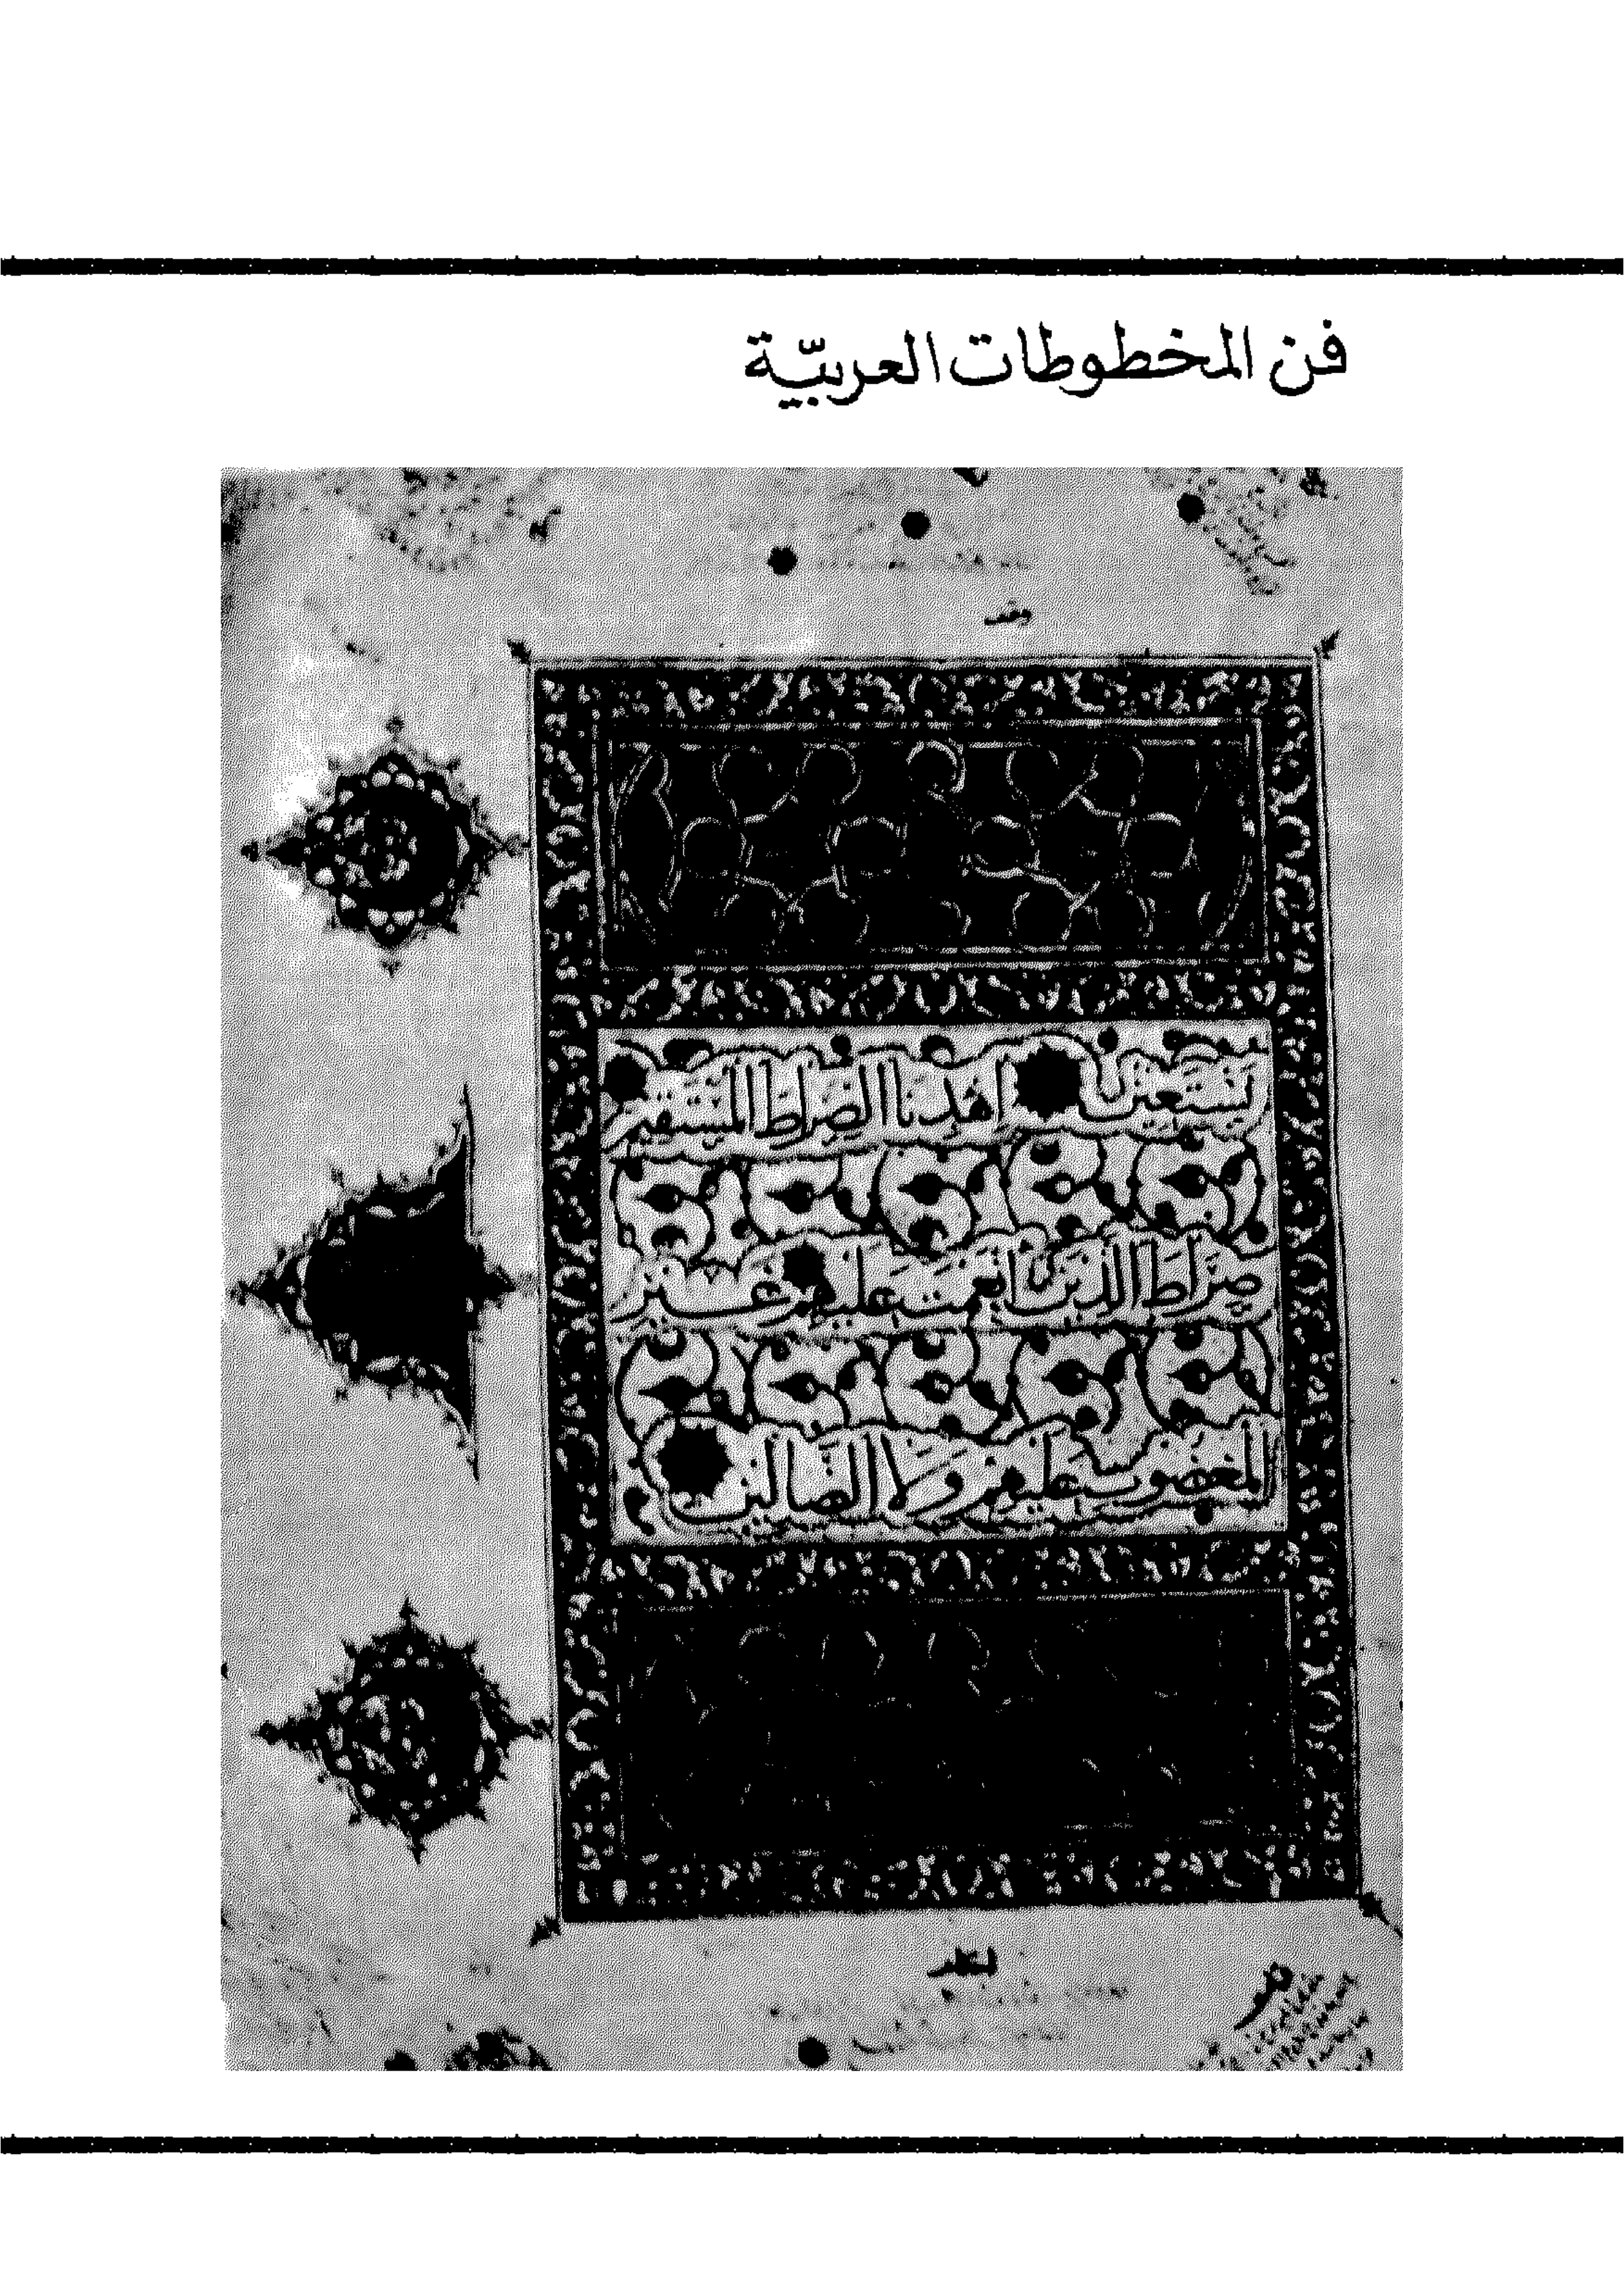 فن المخطوطات العربيّة
وقف
نَسْتَعِينُ اهْدِنَا الصِّرَاطَ الْمُسْتَقِيمَ
صِرَاطَ الَّذِينَ أَنْعَمْتَ عَلَيْهِمْ غَيْرِ
الْمَغْضُوبِ عَلَيْهِمْ وَلَا الضَّالِّينَ